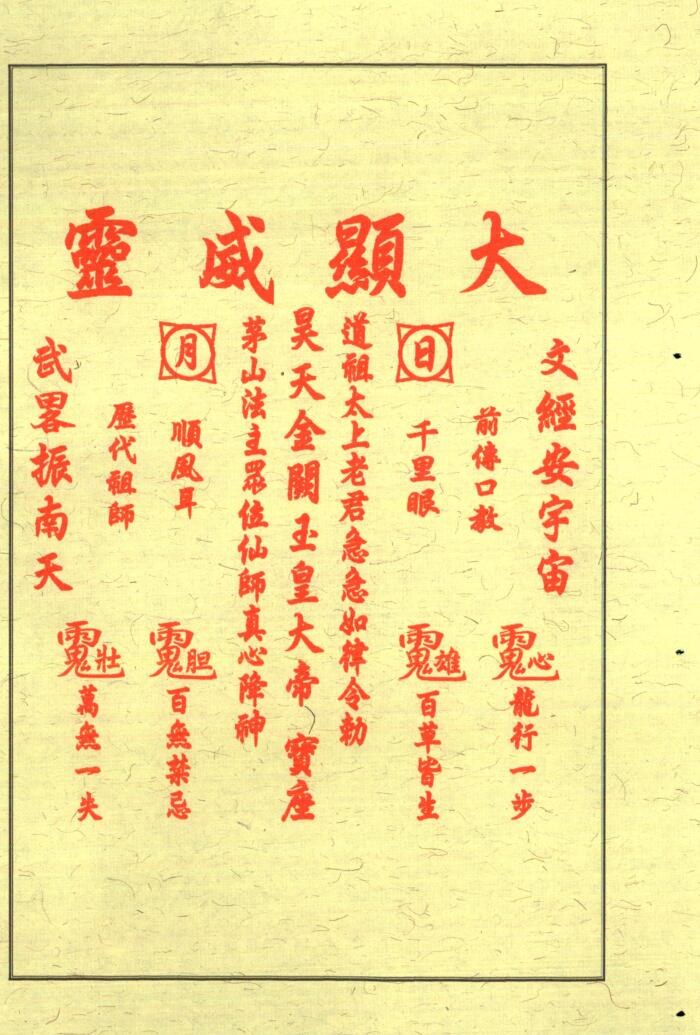 大顯威靈
文經安宇宙
前傳口教
龍行一步
日
千里眼
百草皆生
道祖太上老君急急如律令勅
昊天金闕玉皇大帝 寶座
茅山法主眾位仙師真心降神
月
順風耳
百無禁忌
歷代祖師
萬無一失
武畧振南天